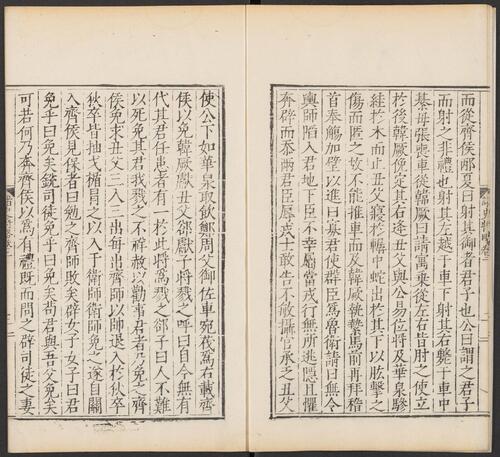 而從齊侯邴夏曰射其御者君子也公曰謂之君子
而射之非禮也射其左越于車下射其右斃于車中
綦毋張喪車從韓厥曰請寓乘從左右皆肘之使立
於後韓厥俛定其右逢丑父與公易位將及華泉驂
絓於木而止丑父寢於轏中蛇出於其下以肱擊之
傷而匿之故不能推車而及韓厥執縶馬前再拜稽
首奉觴加璧以進曰寡君使群臣為魯衛請曰無令
輿師陷入君地下臣不幸屬當戎行無所逃隱且懼
奔辟而忝兩君臣辱戎士敢告不敏攝官承乏丑父
使公下如華泉取飲鄭周父御佐車宛茷為右載齊
侯以免韓厥獻丑父郤獻子將戮之呼曰自今無有
代其君任患者有一於此將為戮乎郤子曰人不難
以死免其君我戮之不祥赦之以勸事君者乃免之齊
侯免求丑父三入三出每出齊師以師退入於狄卒
狄卒皆抽戈楯冒之以入于衛師衛師免之遂自關
入齊侯見保者曰勉之齊師敗矣辟女子女子曰君
免乎曰免矣銳司徒免乎曰免矣苟君與吾父免矣
可若何乃奔齊侯以為有禮既而問之辟司徒之妻